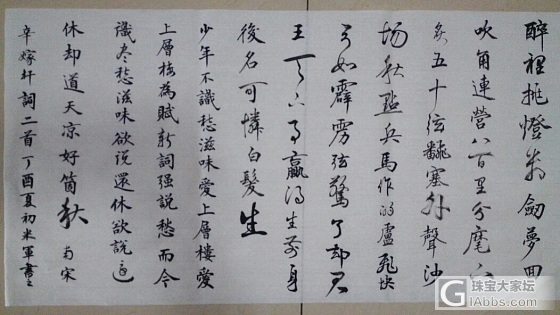 醉裡挑燈看劍夢回
吹角連營八百里分麾下
炙五十弦翻塞外聲沙
場秋點兵馬作的盧飛快
弓如霹靂弦驚了却君
王天下事贏得生前身
後名可憐白髮生
少年不識愁滋味愛上層樓愛
上層樓為賦新詞强說愁而今
識尽愁滋味欲說還休欲說還
休却道天凉好箇秋 南宋
辛稼軒詞二首丁酉夏初米軍書
珠宝大家坛
iAbbs.com